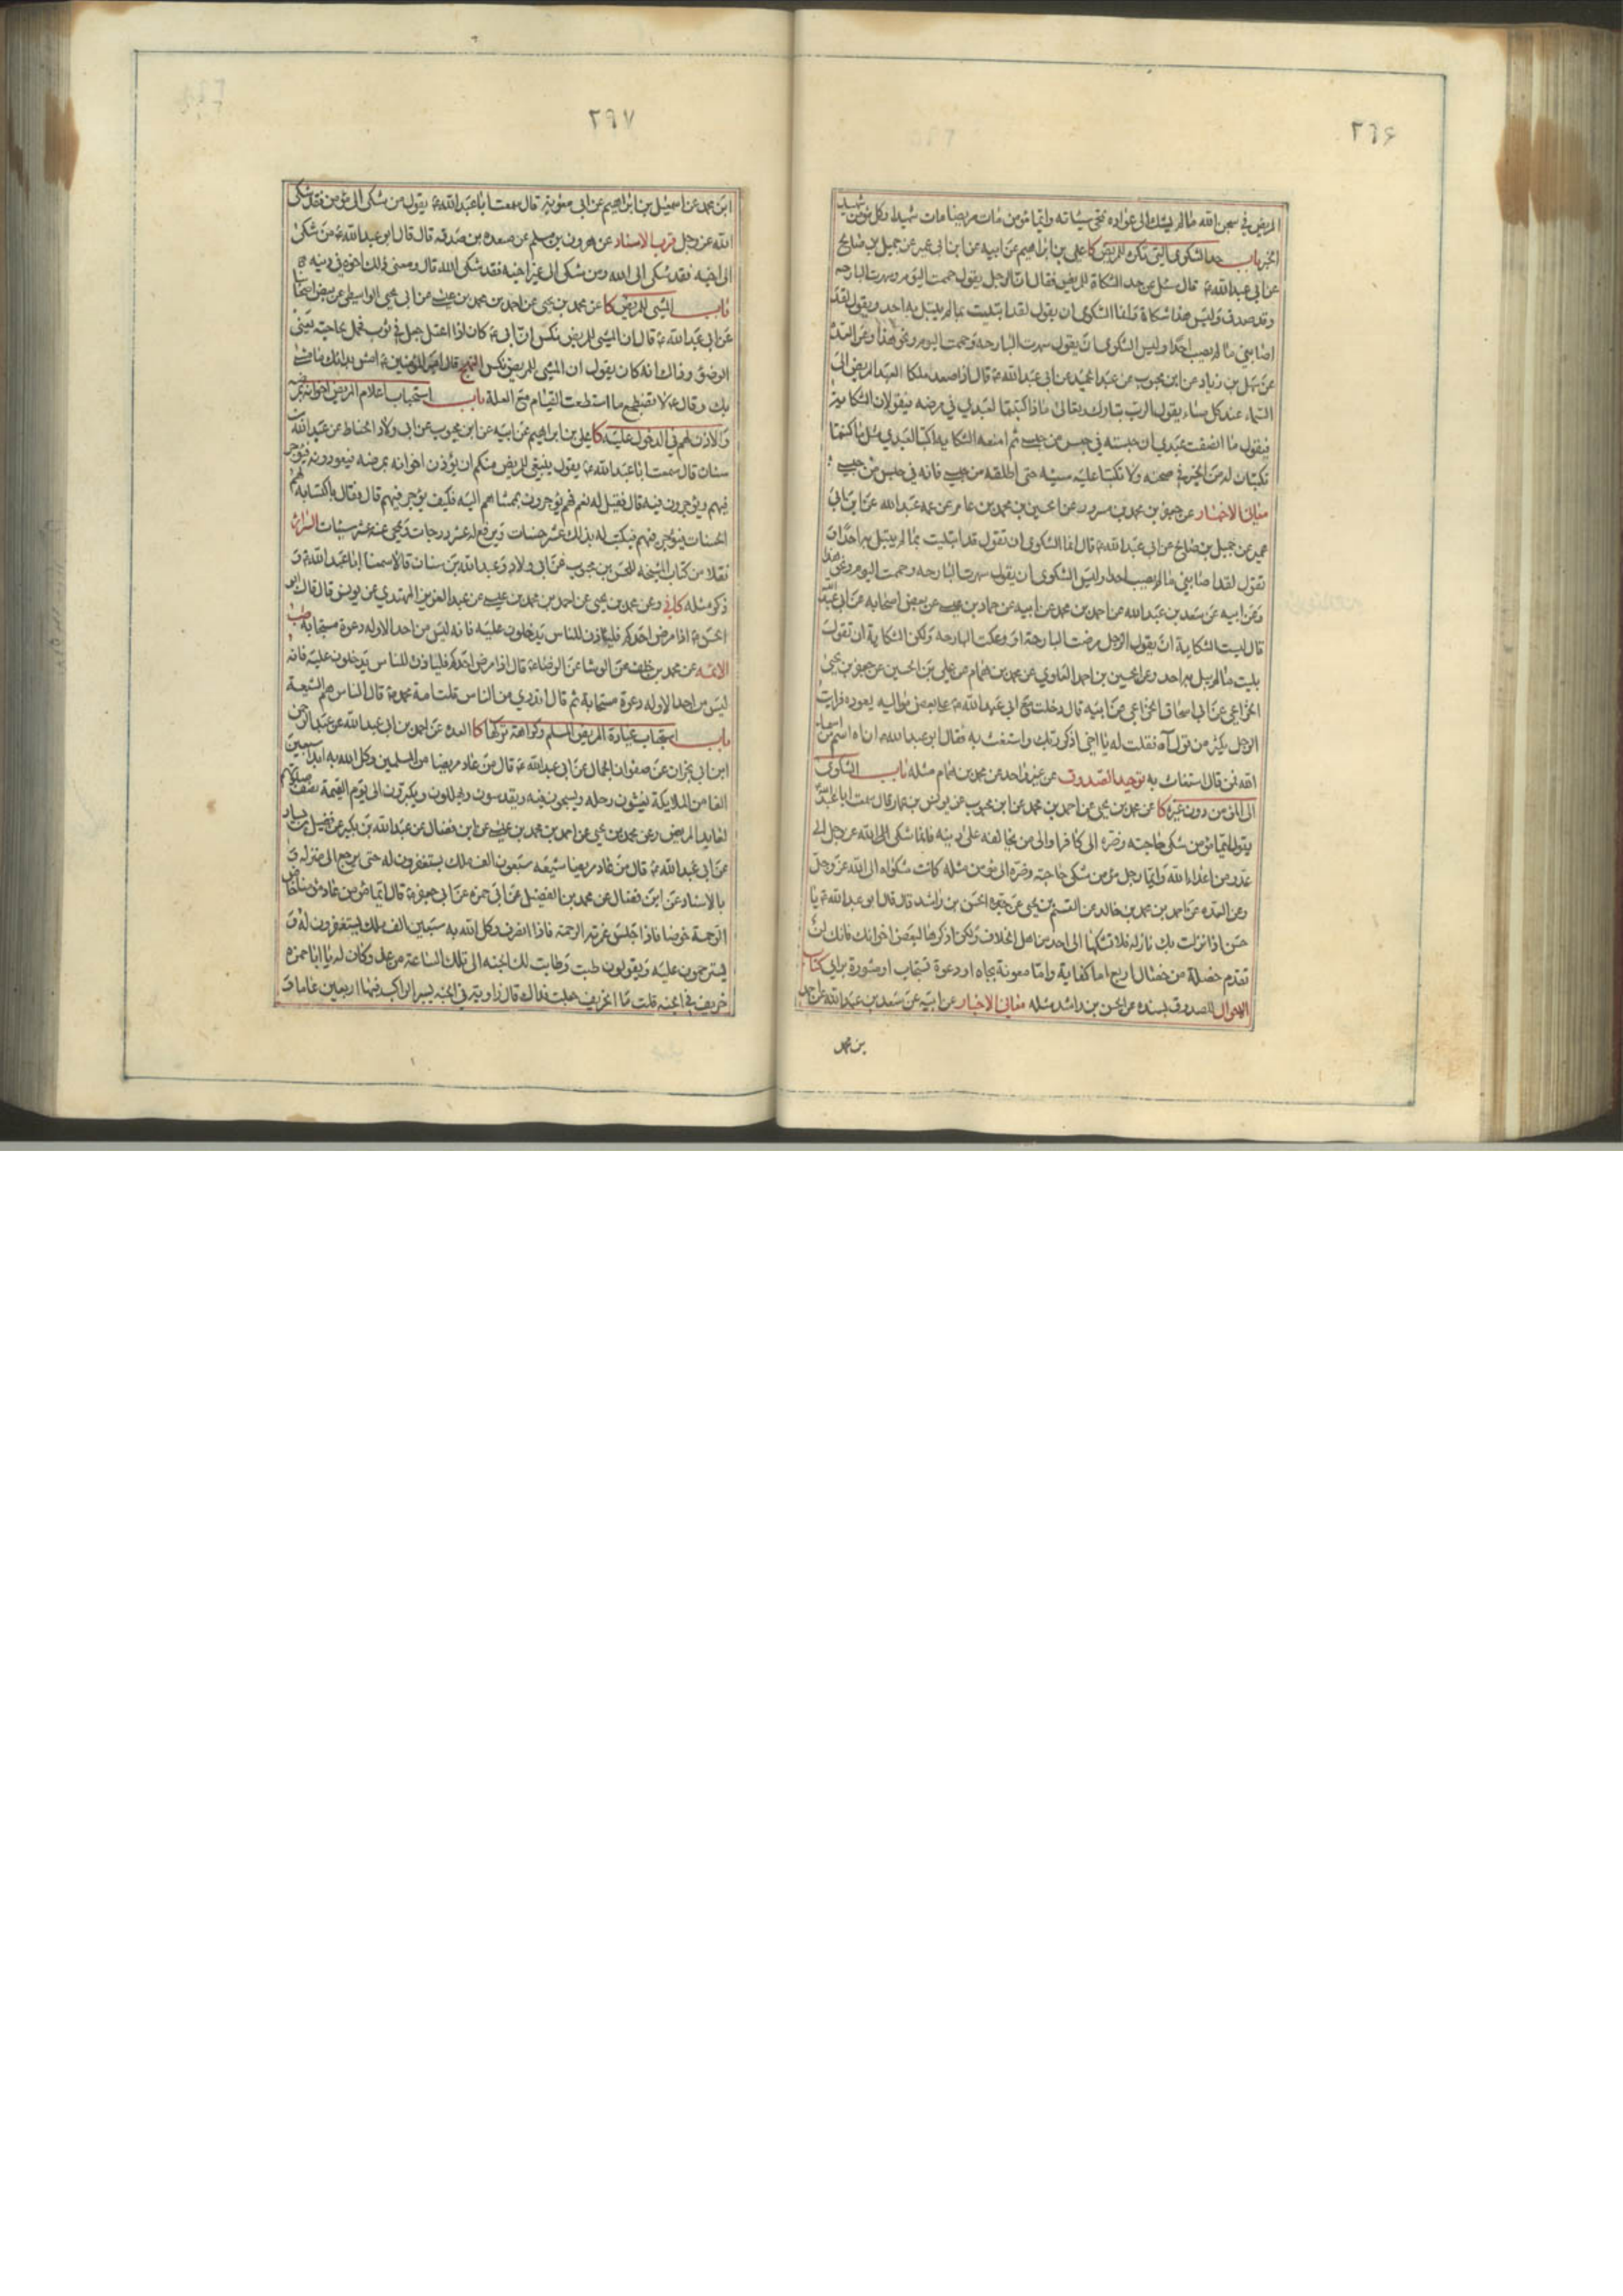 ٢٦۶
المريض في سجن الله ما لم يشك الى عواده تمحى سيئاته وايما مؤمن مات مريضا مات شهيدا وكل مؤمن شهيد
باب حد الشكوى التي تكره للمريض كا علي بن ابراهيم عن ابيه عن ابن ابي عمير عن جميل بن صالح
عن ابي عبد الله ع قال سئل عن حد الشكاة للمريض فقال ان الرجل يقول حممت اليوم وسهرت البارحه
وقد صدق وليس هذا شكاة وانما الشكوى ان يقول لقد ابتليت بما لم يبتل به احد ويقول لقد
اصابني ما لم يصب احدا وليس الشكوى ان يقول سهرت البارحه وحممت اليوم ونحو هذا وعن العدة
عن سهل بن زياد عن ابن محبوب عن عبد الحميد عن ابي عبد الله ع قال اذا صعد ملكا العبد المريض الى
السماء عند كل مساء يقول الرب تبارك وتعالى ماذا كتبتما لعبدي في مرضه فيقولان الشكاية
فيقول ما انصفت عبدي ان حبسته في حبس من حبسي ثم امنعه الشكاية اكتبا لعبدي مثل ما كنتما
تكتبان له من الخير في صحته ولا تكتبا عليه سيئه حتى اطلقه من حبسي فانه في حبس من حبسي
معاني الاخبار عن جعفر بن محمد بن مسرور عن الحسين بن محمد بن عامر عن عمه عبد الله عن ابن ابي
عمير عن جميل بن صالح عن ابي عبد الله ع قال انما الشكوى ان تقول قد ابتليت بما لم يبتل به احد او
تقول لقد اصابني ما لم يصب احدا وليس الشكوى ان يقول سهرت البارحه وحممت اليوم ونحو هذا
وعن ابيه عن سعد بن عبد الله عن احمد بن محمد عن ابيه عن حماد بن عيسى عن بعض اصحابه عن ابي عبد الله
قال ليست الشكاية ان يقول الرجل مرضت البارحة او وعكت البارحه ولكن الشكاية ان تقول
بليت بما لم يبل به احد وعن الحسين بن احمد العلوي عن محمد بن همام عن علي بن الحسين عن جعفر بن يحيى
الخزاعي عن ابي اسحاق الخزاعي عن ابيه قال دخلت مع ابي عبد الله ع على بعض مواليه يعوده فرايت
الرجل يكثر من قول آه فقلت له يا اخي اذكر ربك واستغث به فقال ابو عبد الله ع ان اه اسم من اسماء
الله فمن قال استغاث به توحيد الصدوق عن غير واحد عن محمد بن همام مثله باب الشكوى
الى المؤمن دون غيره كا عن محمد بن يحيى عن احمد بن محمد عن ابن محبوب عن يونس بن عمار قال سمعت ابا عبد الله
يقول ايما مؤمن شكى حاجته وضره الى كافر او الى من يخالفه على دينه فانما شكى الى الله عز وجل الى
عدو من اعداء الله وايما رجل مؤمن شكى حاجته وضره الى مؤمن مثله كانت شكواه الى الله عز وجل
وعن العده عن احمد بن محمد بن خالد عن القسم بن يحيى عن جده الحسن بن راشد قال قال ابو عبد الله ع يا
حسن اذا نزلت بك نازله فلا تشكها الى احد من اهل الخلاف ولكن اذكرها لبعض اخوانك فانك لن
تعدم خصلة من خصال اربع اما كفاية واما معونة بجاه او دعوة تستجاب او مشورة براي كتاب
الاخوال للصدوق بسنده عن الحسن بن راشد مثله معاني الاخبار عن ابيه عن سعد بن عبد الله عن احمد
بن محمد
٢٦٧
ابن محمد عن اسمعيل بن ابراهيم عن ابي معوية قال سمعت ابا عبد الله ع يقول من شكى الى مؤمن فقد شكى
الله عز وجل قرب الاسناد عن هرون بن مسلم عن مسعده بن صدقه قال قال ابو عبد الله ع من شكى
الى اخيه فقد شكى الى الله ومن شكى الى غير اخيه فقد شكى الله قال ومعنى ذلك اخوه في دينه
باب المشي للمريض كا عن محمد بن يحيى عن احمد بن محمد بن عيسى عن ابي يحيى الواسطي عن بعض اصحابنا
عن ابي عبد الله ع قال ان المشي للمريض نكس ان ابي ع كان اذا اعتل جعل في ثوب فحمل لحاجته يعني
الوضوء وذاك انه كان يقول ان المشي للمريض نكس النهج قال امير المؤمنين ع امش بدائك ما مشى
بك وقال ع لا تضطجع ما استطعت القيام مع العلة باب استحباب اعلام المريض اخوانه بمرضه
والاذن لهم في الدخول عليه كا علي بن ابراهيم عن ابيه عن ابن محبوب عن ابي ولاد الحناط عن عبد الله بن
سنان قال سمعت ابا عبد الله ع يقول ينبغي للمريض منكم ان يؤذن اخوانه بمرضه فيعودونه فيؤجر
فيهم ويؤجرون فيه قال فقيل له نعم فهم يؤجرون بممشاهم اليه فكيف يؤجر فيهم قال وقال باكتسابه لهم
الحسنات فيؤجر فيهم فيكتب له بذلك عشر حسنات ويرفع له عشر درجات ويمحى عنه عشر سيئات السرائر
نقلا من كتاب المشيخه للحسن بن محبوب عن ابي ولاد وعبد الله بن سنان قالا سمعنا ابا عبد الله ع و
ذكر مثله كافي وعن محمد بن يحيى عن احمد بن محمد بن عيسى عن عبد العزيز المهتدي عن يونس قال قال ابو
الحسن ع اذا مرض احدكم فلياذن للناس يدخلون عليه فانه ليس من احد الا وله دعوة مستجابة طب
الائمه عن محمد بن خلف عن الوشا عن الرضا ع قال اذا مرض احدكم فلياذن للناس يدخلون عليه فانه
ليس من احد الا وله دعوة مستجابة ثم قال اتدري من الناس قلت امة محمد ص قال الناس هم الشيعة
باب استحباب عيادة المريض المسلم وكراهة تركها كا العده عن احمد بن ابي عبد الله عن عبد الرحمن
ابن ابي نجران عن صفوان الجمال عن ابي عبد الله ع قال من عاد مريضا من المسلمين وكل الله به ابدا سبعين
الفا من الملايكة يغشون رحله ويسبحون فيه ويقدسون ويهللون ويكبرون الى يوم القيمة نصف صلوتهم
لعايد المريض وعن محمد بن يحيى عن احمد بن محمد بن عيسى عن ابن فضال عن عبد الله بن بكير عن فضيل بن يسار
عن ابي عبد الله ع قال من عاد مريضا شيعه سبعون الف ملك يستغفرون له حتى يرجع الى منزله و
بالاسناد عن ابن فضال عن محمد بن الفضيل عن ابي حمزه عن ابي جعفر ع قال ايما مؤمن عاد مؤمنا خاض
الرحمة خوضا فاذا جلس غمرته الرحمة فاذا انصرف وكل الله به سبعين الف ملك يستغفرون له و
يسترحمون عليه ويقولون طبت وطابت لك الجنه الى تلك الساعة من غد وكان له يا ابا حمزه
خريف في الجنه قلت ما الخريف جعلت فداك قال زاوية في الجنه يسير الراكب فيها اربعين عاما و